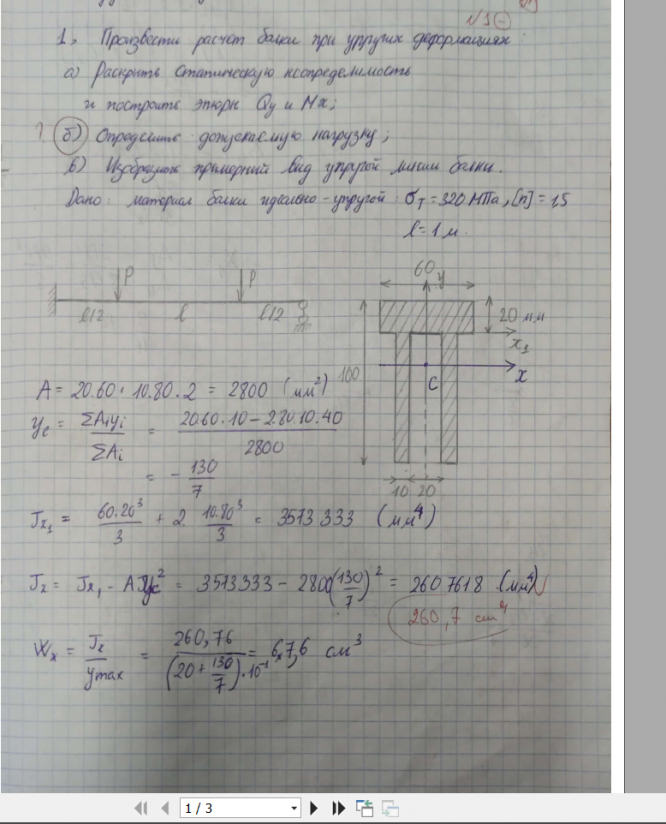 N 1 (-)
1, Произвести расчет балки при упругих деформациях:
а) Раскрыть статическую неопределимость
и построить эпюры Qy и Mx;
? б) Определить допускаемую нагрузку;
в) Изобразить примерный вид упругой линии балки.
Дано: материал балки идеально-упругой: σт = 320 МПа, [n] = 1,5
l = 1 м.
P P
l/2 l l/2
60 y
20 мм
x1
x
C
100
10 20
A = 20·60 + 10·80·2 = 2800 (мм²)
yc = ΣAiyi / ΣAi = (20·60·10 − 2·80·10·40) / 2800
= − 130/7
Jx1 = 60·20³/3 + 2 · 10·80³/3 = 3573333 (мм⁴)
Jx = Jx1 − A yc² = 3573333 − 2800(130/7)² = 2607618 (мм⁴)
260,7 см⁴
Wx = Jx / ymax = 260,76 / ((20 + 130/7)·10⁻¹) = 67,6 см³
1 / 3